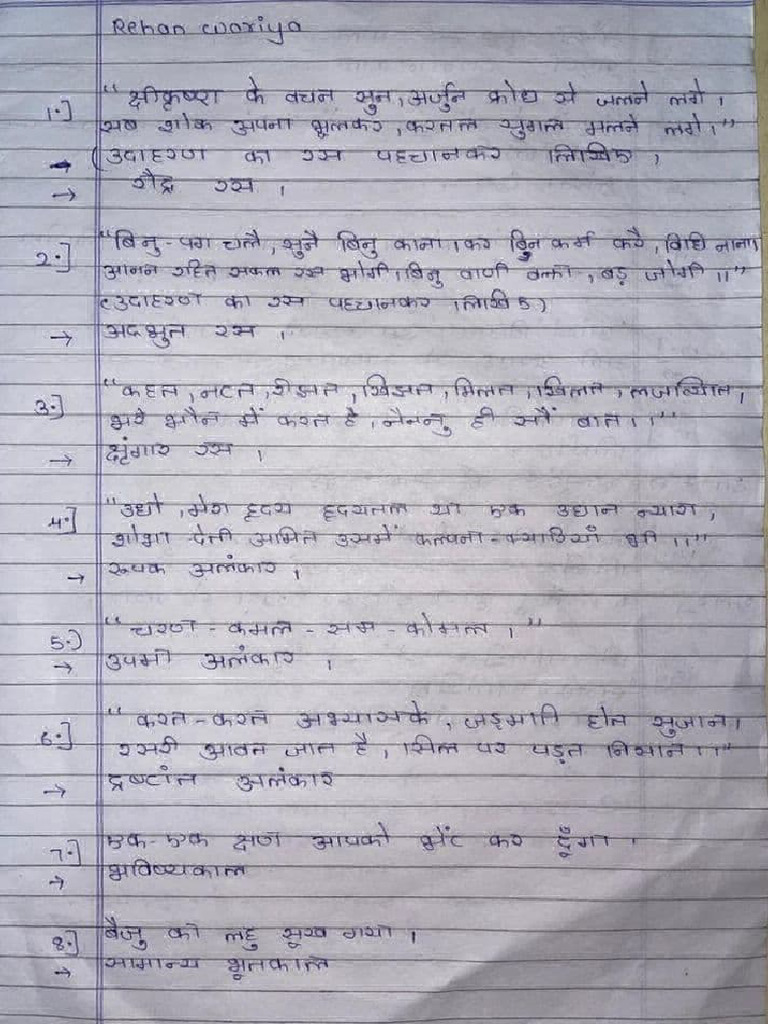 Rehan Wariya
1.] “श्रीकृष्ण के वचन सुन, अर्जुन क्रोध से जलने लगे।
सब शोक अपना भूलकर, करतल युगल मलने लगे।”
→ (उदाहरण का रस पहचानकर लिखिए।
→ रौद्र रस।
2.] “बिनु-पग चलै, सुनै बिनु काना। कर बिनु कर्म करै, विधि नाना।
आनन रहित सकल रस भोगी। बिनु वाणी वक्ता, बड़ जोगी॥”
(उदाहरण का रस पहचानकर लिखिए)
→ अदभुत रस।
3.] “कहत, नटत, रीझत, खिझत, मिलत, खिलत, लजियात,
भरे भौन में करत है, नैननु ही सौं बात।।”
→ श्रृंगार रस।
4.] “उधो, मेरा हृदय हृदयतल था एक उद्यान न्यारा,
शोभा देती अमित उसमें कल्पना-क्यारियाँ थी।।”
→ रूपक अलंकार।
5.) “चरण-कमल-सम-कोमल।”
→ उपमा अलंकार।
6.] “करत-करत अभ्यासके, जड़मति होत सुजान।
रसरी आवत जात है, सिल पर पड़त निसान।।”
→ द्रष्टांत अलंकार
7.] एक-एक क्षण आपको भेंट कर दूँगा।
→ भविष्यकाल
8.] बैजु का लहु सूख गया।
→ सामान्य भूतकाल